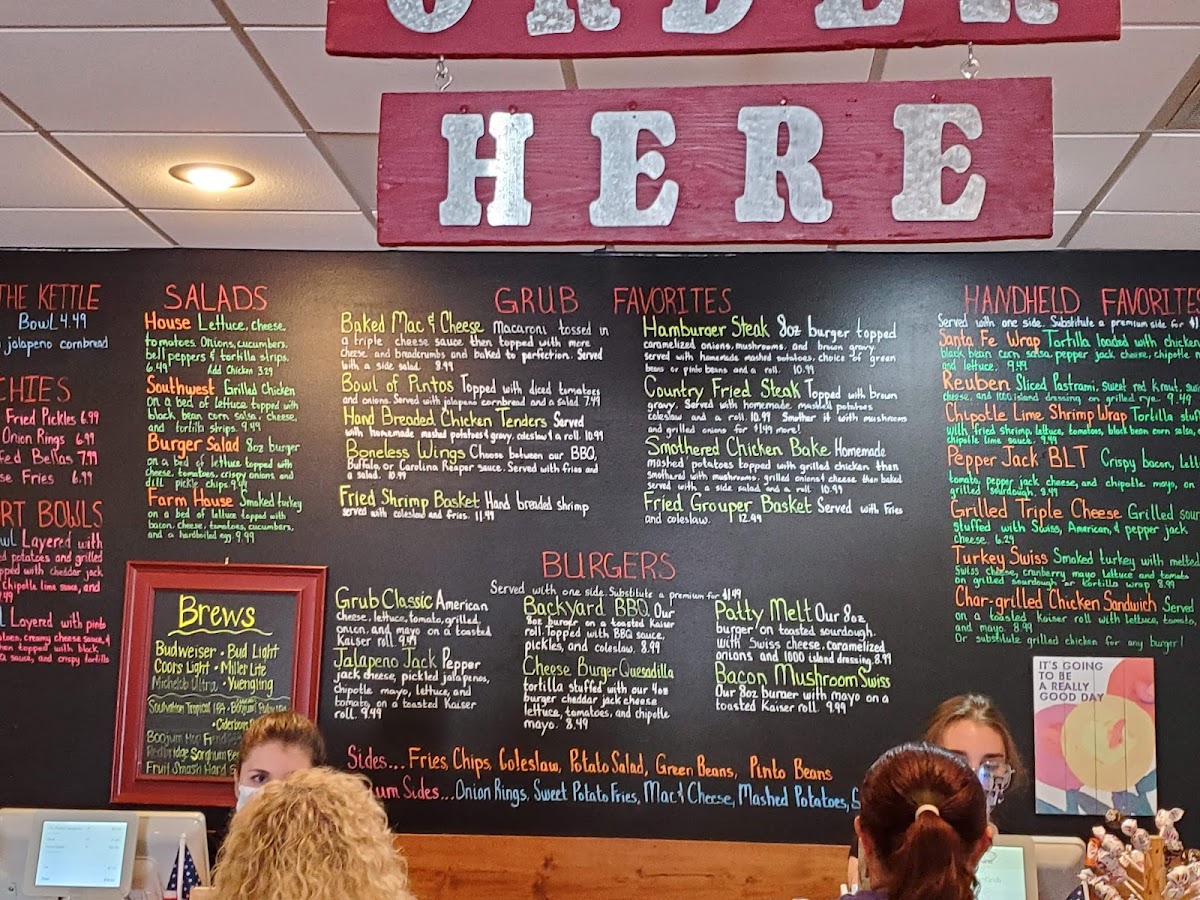 ORDER
HERE
THE KETTLE
Bowl 4.49
jalapeno cornbread
Fried Pickles 6.99
Onion Rings 6.99
Bellas 7.99
Fries 6.99
BOWLS
Layered with
potatoes and grilled
with cheddar jack
Chipotle lime sauce, and
Layered with pinto
creamy cheese sauce,
then topped with black
sauce, and crispy tortilla
SALADS
House Lettuce, cheese,
tomatoes, Onions, cucumbers,
bell peppers & tortilla strips.
6.49 Add Chicken 3.29
Southwest Grilled Chicken
on a bed of lettuce topped with
black bean corn salsa, cheese,
and tortilla strips. 9.49
Burger Salad 8oz burger
on a bed of lettuce topped with
cheese, tomatoes, crispy onions and
dill pickle chips 9.49
Farm House Smoked turkey
on a bed of lettuce topped with
bacon, cheese, tomatoes, cucumbers,
and a hardboiled egg. 9.99
Brews
Budweiser • Bud Light
Coors Light • Miller Lite
Michelob Ultra • Yuengling
Tropical IPA •
Boojum Hop
Redbridge Sorghum
Fruit Smash Hard
GRUB FAVORITES
Baked Mac & Cheese Macaroni tossed in
a triple cheese sauce then topped with more
cheese and breadcrumbs and baked to perfection. Served
with a side salad 8.99
Bowl of Pintos Topped with diced tomatoes
and onions. Served with jalapeno cornbread and a salad 7.49
Hand Breaded Chicken Tenders Served
with homemade mashed potatoes & gravy, coleslaw & a roll. 10.99
Boneless Wings Choose between our BBQ,
Buffalo, or Carolina Reaper sauce. Served with fries and
a salad. 10.99
Fried Shrimp Basket Hand breaded shrimp
served with coleslaw and fries. 11.99
Hamburger Steak 8oz burger topped
caramelized onions, mushrooms, and brown gravy
served with homemade mashed potatoes, choice of green
beans or pinto beans and a roll. 10.99
Country Fried Steak Topped with brown
gravy. Served with homemade mashed potatoes
coleslaw and a roll 10.99 Smother it with mushrooms
and grilled onions for $1.49 more!
Smothered Chicken Bake Homemade
mashed potatoes topped with grilled chicken then
smothered with mushrooms, grilled onions & cheese then baked
served with a side salad and a roll 10.99
Fried Grouper Basket Served with Fries
and coleslaw. 12.99
BURGERS
Served with one side. Substitute a premium for $1.49
Grub Classic American
cheese, lettuce, tomato, grilled
onion, and mayo on a toasted
Kaiser roll. 9.49
Jalapeno Jack Pepper
jack cheese, pickled jalapenos,
chipotle mayo, lettuce, and
tomato, on a toasted Kaiser
roll. 9.49
Backyard BBQ Our
8oz burger on a toasted Kaiser
roll. Topped with BBQ sauce,
pickles, and coleslaw. 8.99
Cheese Burger Quesadilla
tortilla stuffed with our 4oz
burger cheddar jack cheese
lettuce, tomatoes, and chipotle
mayo. 8.49
Patty Melt Our 8oz
burger on toasted sourdough.
with Swiss cheese, caramelized
onions and 1000 island dressing. 8.99
Bacon Mushroom Swiss
Our 8oz burger with mayo on a
toasted Kaiser roll. 9.99
Sides... Fries, Chips, Coleslaw, Potato Salad, Green Beans, Pinto Beans
Sides... Onion Rings, Sweet Potato Fries, Mac & Cheese, Mashed Potatoes,
HANDHELD FAVORITES
Served with one side. Substitute a premium side for
Santa Fe Wrap Tortilla loaded with chicken
black bean corn salsa, pepper jack cheese, chipotle
and lettuce. 9.49
Reuben Sliced Pastrami, sweet red kraut,
cheese, and 1000 island dressing on grilled rye. 9.49
Chipotle Lime Shrimp Wrap Tortilla
with fried shrimp, lettuce, tomatoes, black bean corn salsa,
chipotle lime sauce. 9.99
Pepper Jack BLT Crispy bacon,
tomato, pepper jack cheese, and chipotle mayo, on
grilled sourdough. 8.99
Grilled Triple Cheese Grilled
stuffed with Swiss, American, & pepper jack
cheese. 6.29
Turkey Swiss Smoked turkey with melted
Swiss cheese, cranberry mayo lettuce and tomato
on grilled sourdough or tortilla wrap 8.99
Char-grilled Chicken Sandwich Served
on a toasted Kaiser roll with lettuce, tomato,
and mayo. 8.99
Or substitute grilled chicken for any burger!
IT'S GOING
TO BE
A REALLY
GOOD DAY